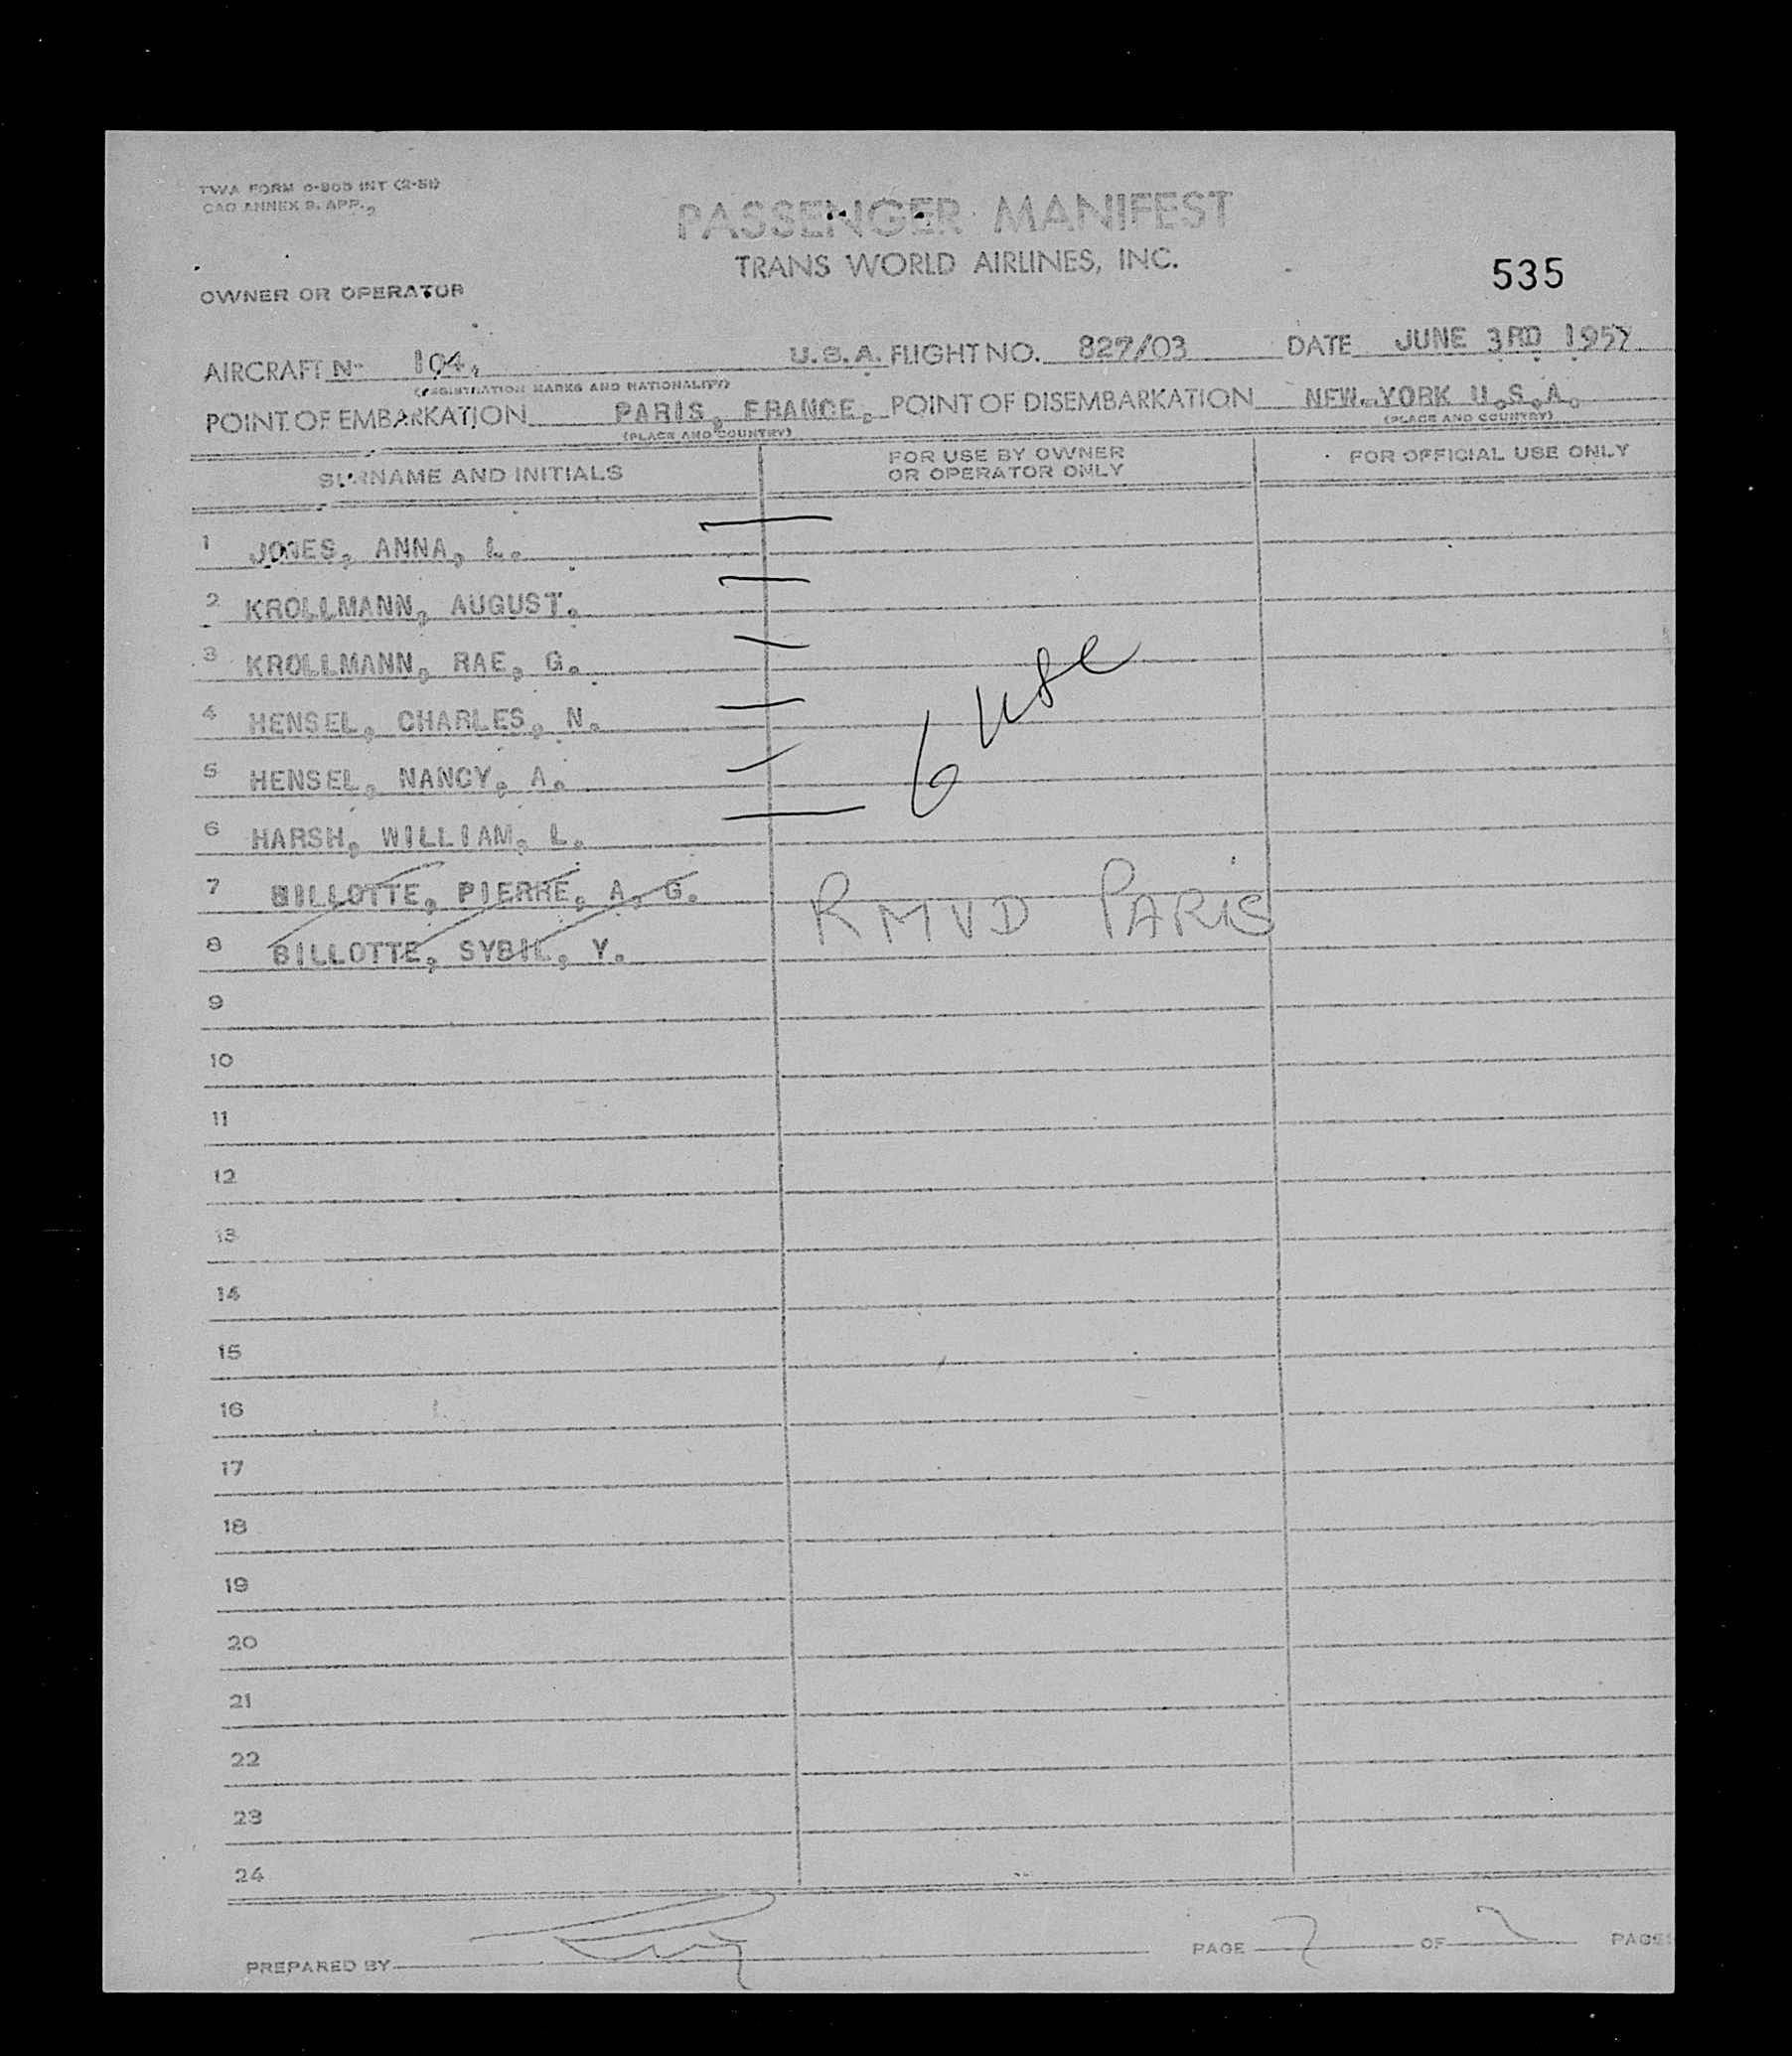 TWA FORM 0-805 INT (2-51)
CAO ANNEX 9. APP. 2
PASSENGER MANIFEST
TRANS WORLD AIRLINES, INC.
535
OWNER OR OPERATOR
AIRCRAFT N- 104. U.S.A. FLIGHT NO. 827/03 DATE JUNE 3RD 1957
(REGISTRATION MARKS AND NATIONALITY)
POINT OF EMBARKATION PARIS, FRANCE. POINT OF DISEMBARKATION NEW YORK U.S.A.
(PLACE AND COUNTRY) (PLACE AND COUNTRY)
SURNAME AND INITIALS FOR USE BY OWNER OR OPERATOR ONLY FOR OFFICIAL USE ONLY
1 JONES, ANNA, L.
2 KROLLMANN, AUGUST.
3 KROLLMANN, RAE, G.
4 HENSEL, CHARLES, N.
5 HENSEL, NANCY, A.
6 HARSH, WILLIAM, L.
6 USC
7 BILLOTTE, PIERRE, A. G.
RMVD PARIS
8 BILLOTTE, SYBIL, Y.
9
10
11
12
13
14
15
16
17
18
19
20
21
22
23
24
PREPARED BY PAGE 2 OF 2 PAGES